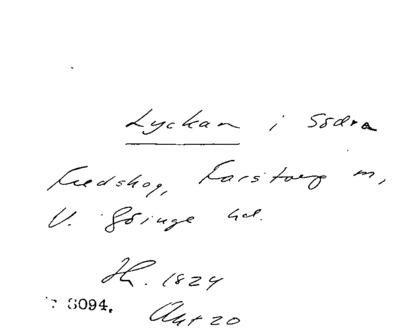 Lyckan i Södra
Fredskog, Farstorp m,
V. Göinge hd.
Hh. 1824
8094.
Akt 20